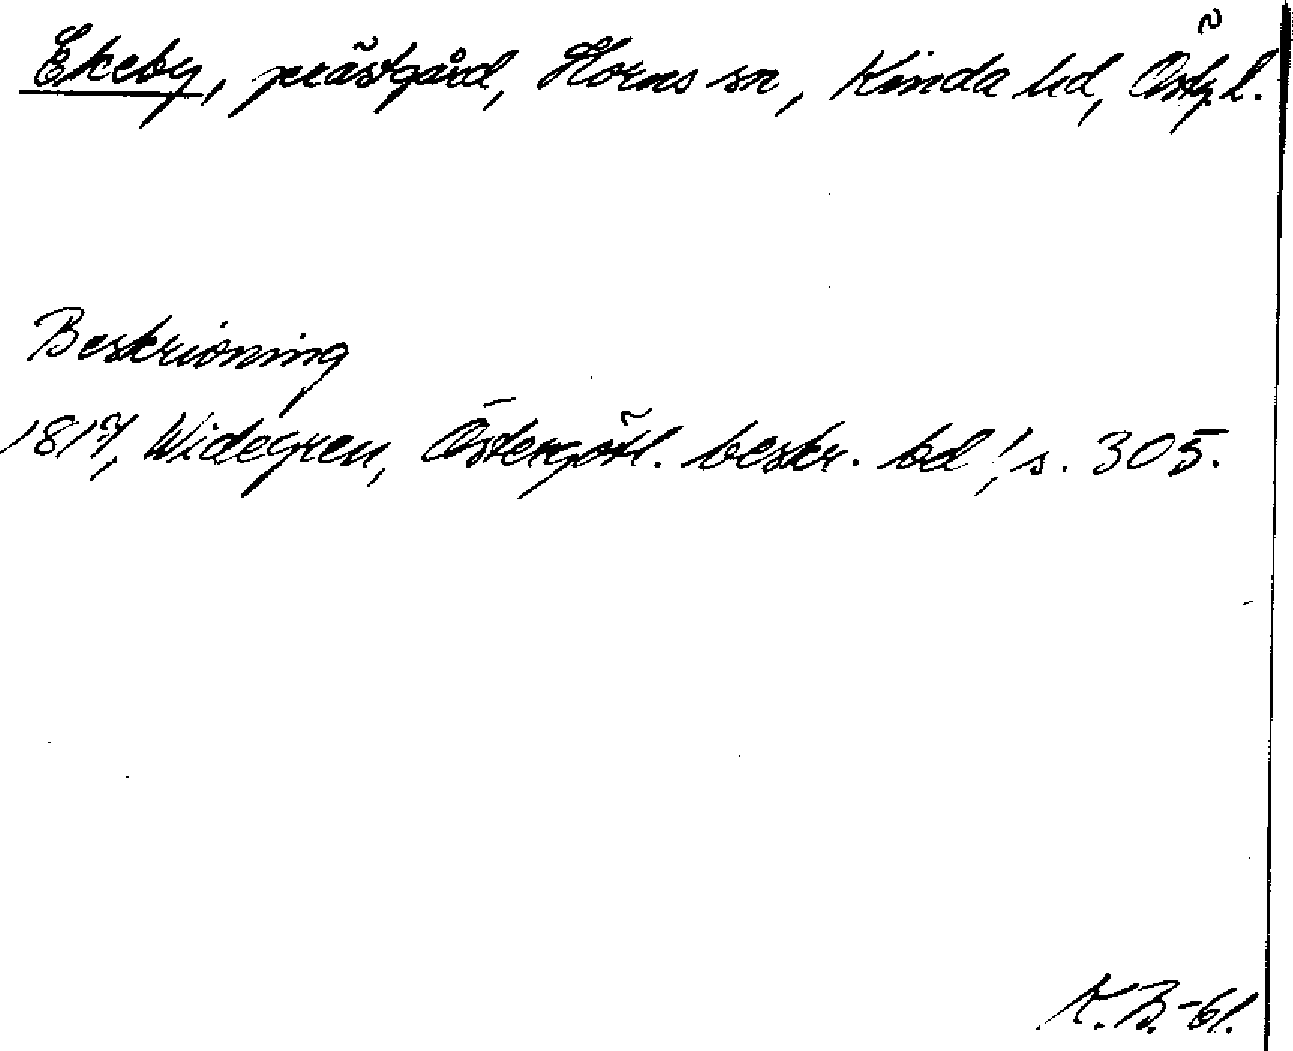 Ekeby, prästgård, Horns sn, Kinda hd, Östg. l.
Beskrivning
1817, Widegren, Östergötl. beskr. bd 1, s. 305.
K. B. -61.